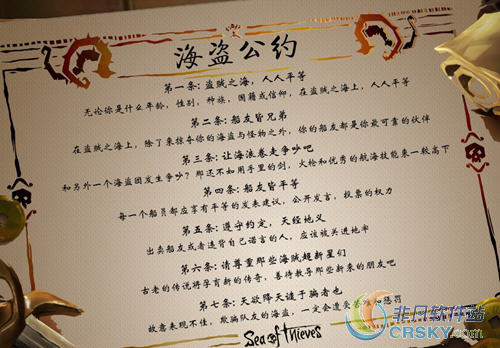 海盗公约
第一条: 盗贼之海, 人人平等
无论你是什么年龄, 性别, 种族, 国籍或信仰, 在盗贼之海上, 人人平等
第二条: 船友皆兄弟
在盗贼之海上, 除了来掠夺你的海盗与怪物之外, 你的船友都是你最可靠的伙伴
第三条: 让海浪卷走争吵吧
和另外一个海盗团发生争吵? 那还不如用手里的剑, 火枪和优秀的航海技能来一较高下
第四条: 船友皆平等
每一个船员都应享有平等的发表建议, 公开发言, 投票的权力
第五条: 遵守约定, 天经地义
出卖船友或者违背自己诺言的人, 应该被关进地牢
第六条: 请尊重那些海贼超新星们
古老的传说将孕育新的传奇, 善待教导那些新来的朋友吧
第七条: 天欲降天谴于骗者也
故意表现不佳, 欺骗队友的海盗, 一定会遭受苦难和惩罚
Sea of Thieves
非凡软件站
CRSKY.com